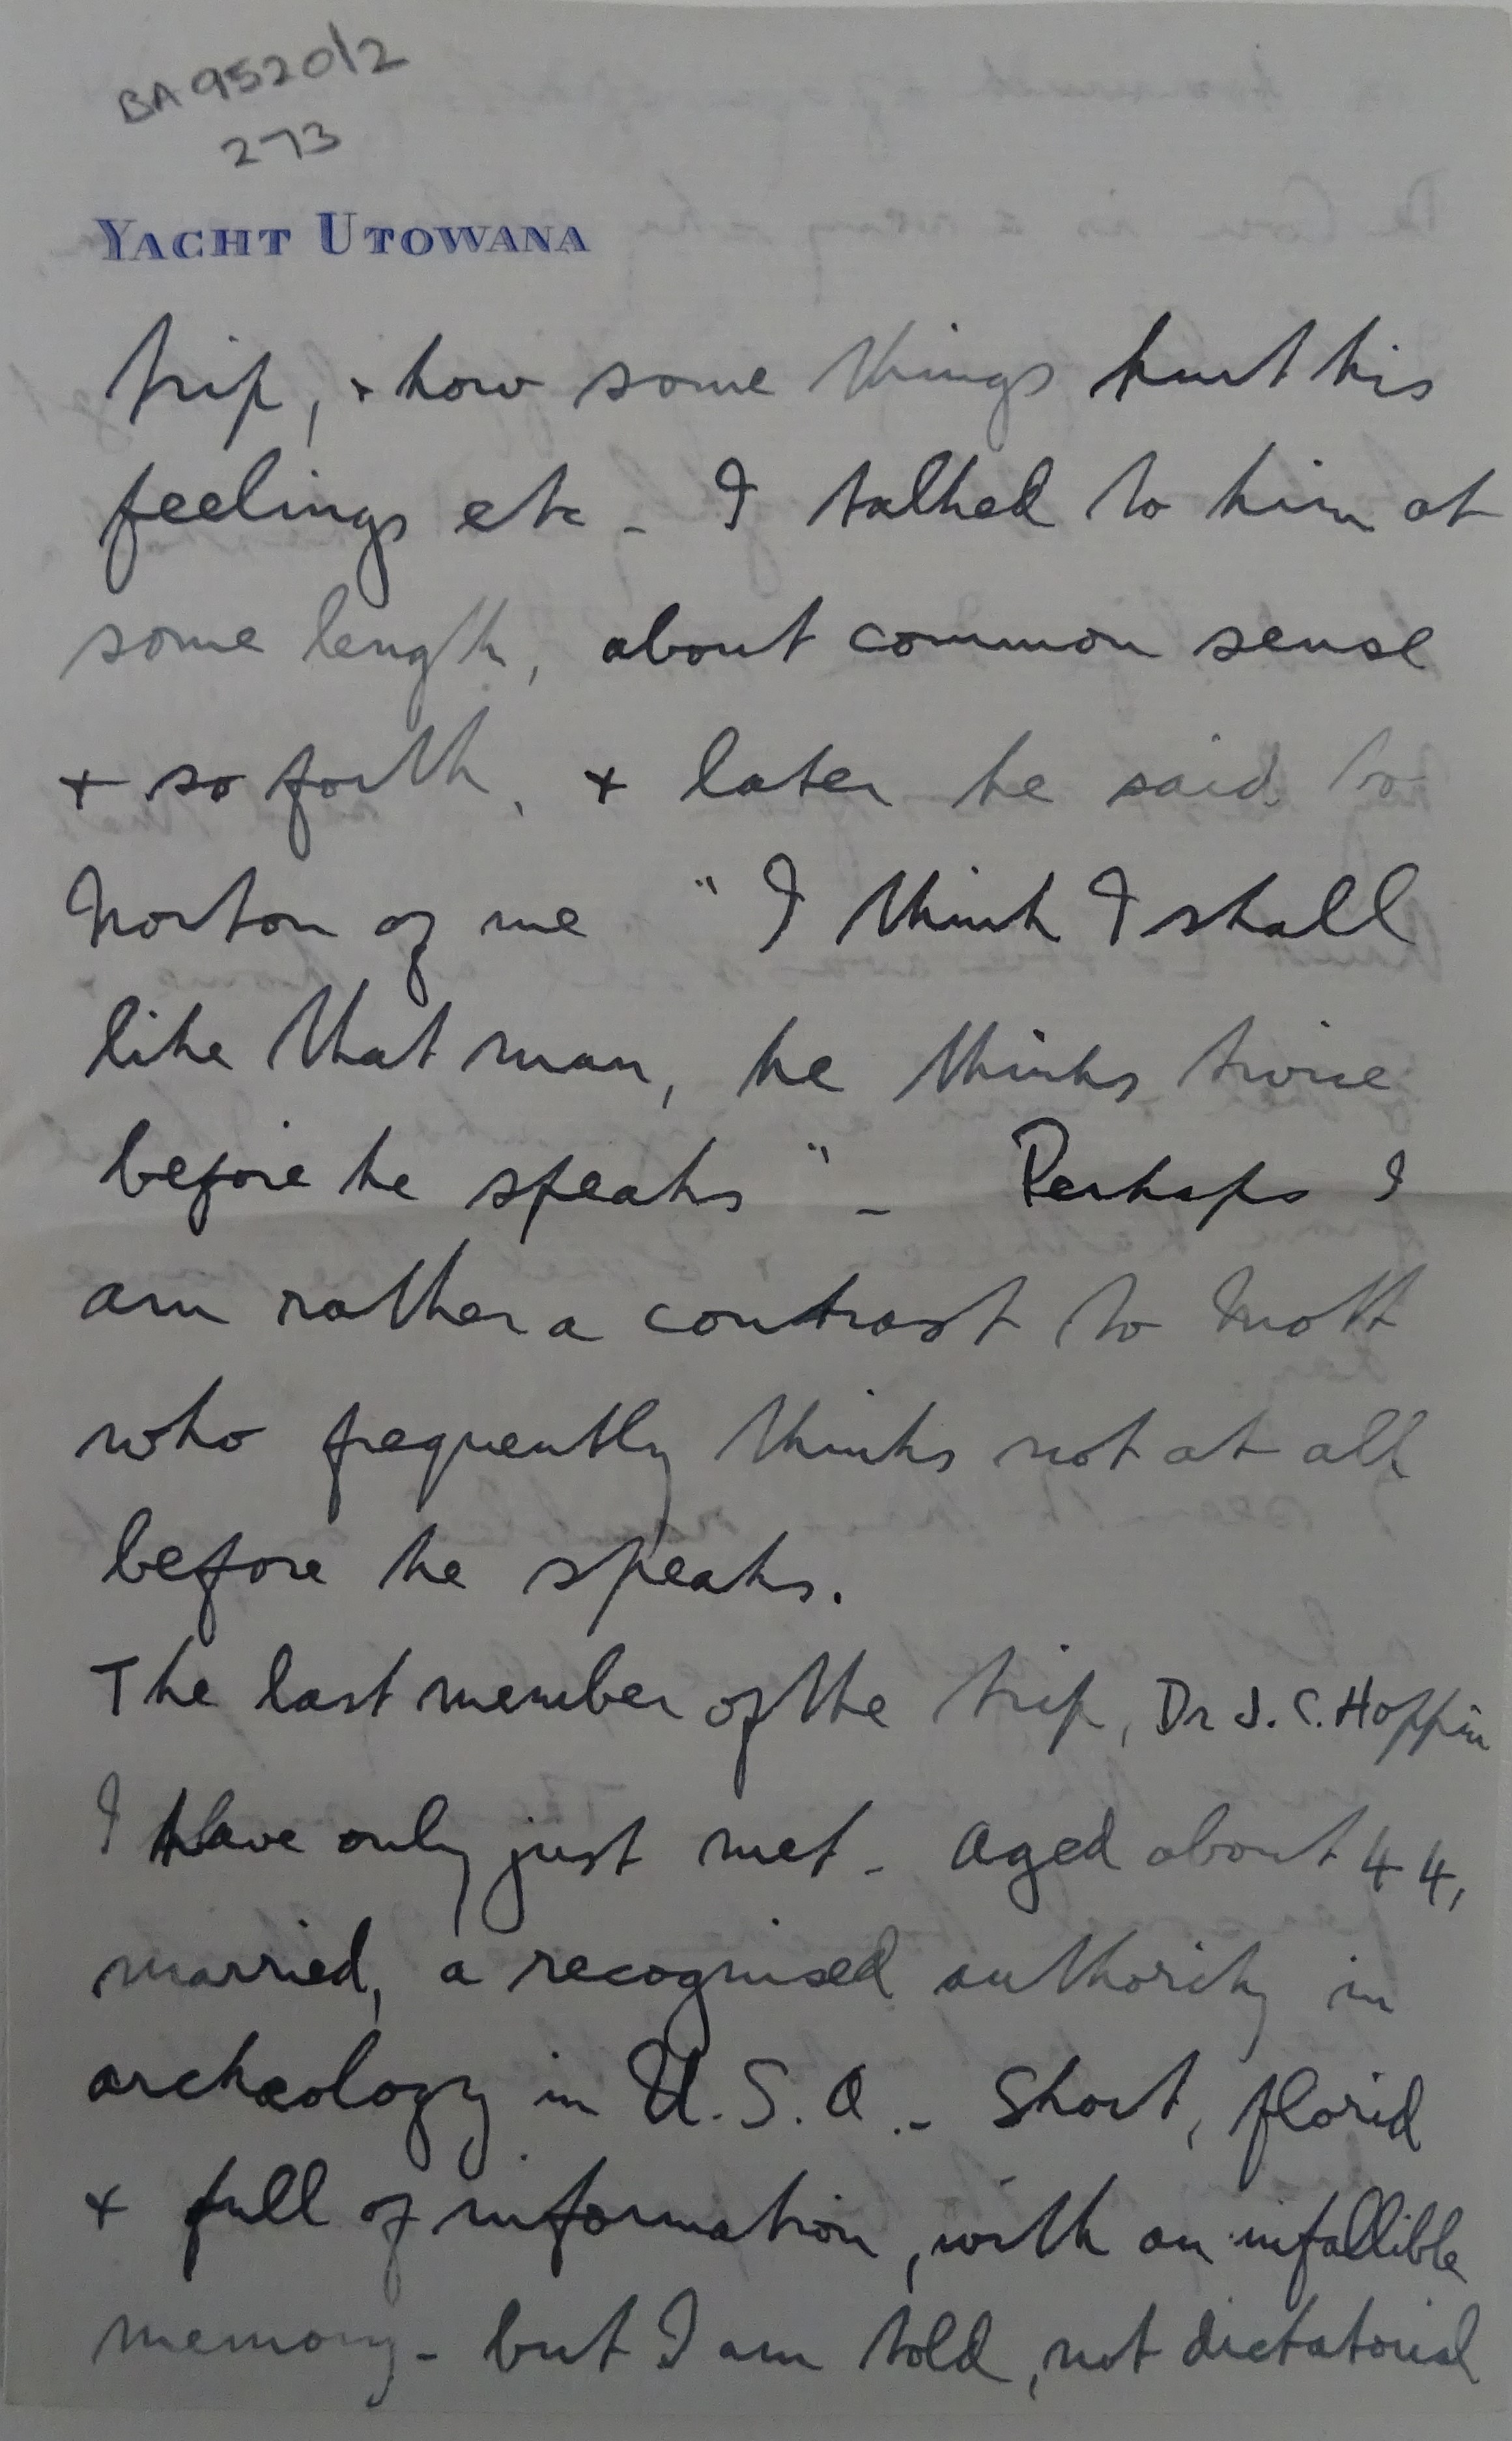 BA 9520/2
273
YACHT UTOWANA
trip, + how some things hurt his
feelings etc - I talked to him at
some length, about common sense
+ so forth, + later he said to
Norton of me "I think I shall
like that man, he thinks twice
before he speaks" - Perhaps I
am rather a contrast to Mott
who frequently thinks not at all
before he speaks.
The last member of the trip, Dr J. C. Hoppin
I have only just met - Aged about 44,
married, a recognised authority in
archæology in U.S.A. - Short, florid
+ full of information, with an infallible
memory - but I am told, not dictatorial